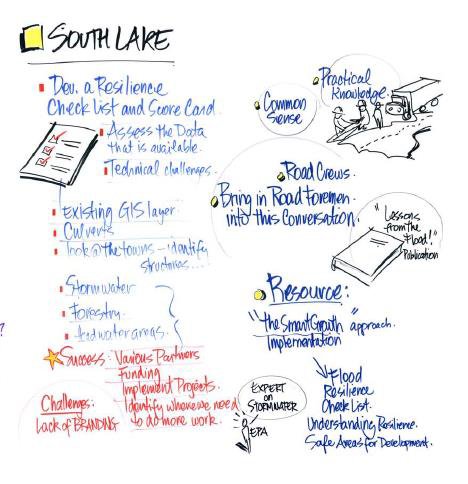 SOUTH LAKE
Dev. a Resilience
Check List and Score Card.
Assess the Data
that is available.
Technical challenges.
Existing GIS layer
Culverts
Look @ the towns - identify
structures....
Stormwater
Forestry.
Headwater areas.
Success: Various Partners
Funding
Implement Projects.
Identify where we need
to do more work.
Challenges:
Lack of BRANDING
Practical
Knowledge.
Common
Sense
Road Crews.
Bring in Road Foremen
into this Conversation.
"Lessons
from the
Flood!"
Publication
Resource:
"the Smart Growth" approach.
Implementation
Flood
Resilience
Check List.
Understanding Resilience.
Safe Areas for Development.
EXPERT
on
STORMWATER
EPA
?